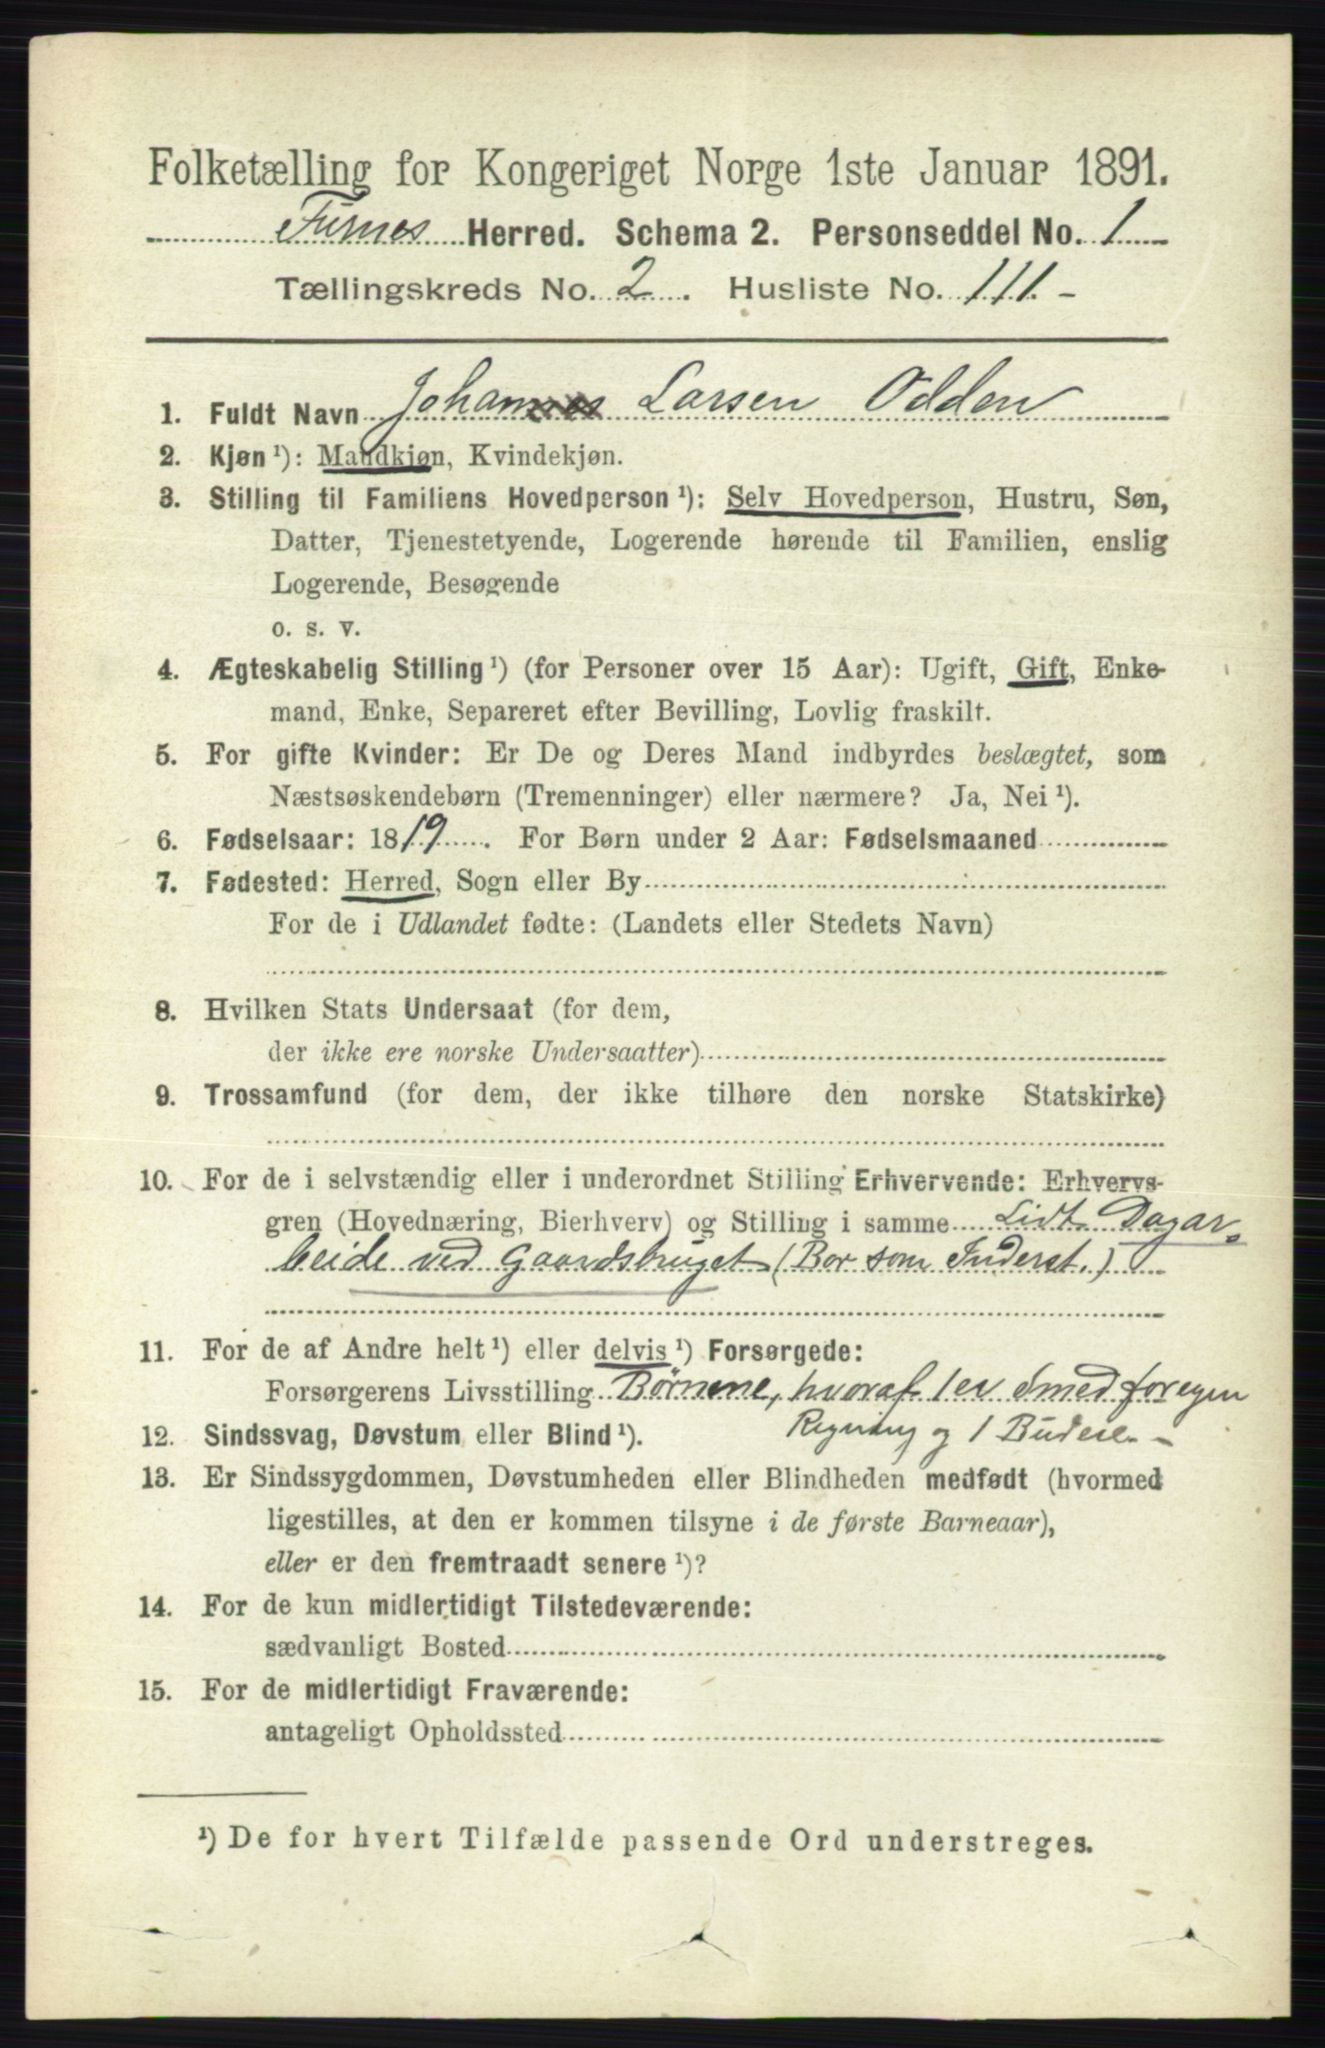 Folketælling for Kongeriget Norge 1ste Januar 1891.
Furnes Herred. Schema 2. Personseddel No. 1
Tællingskreds No. 2. Husliste No. 111. -
1. Fuldt Navn Johannes Larsen Odden
2. Kjøn ¹): Mandkjøn, Kvindekjøn.
3. Stilling til Familiens Hovedperson ¹): Selv Hovedperson, Hustru, Søn,
Datter, Tjenestetyende, Logerende hørende til Familien, enslig
Logerende, Besøgende
o. s. v.
4. Ægteskabelig Stilling ¹) (for Personer over 15 Aar): Ugift, Gift, Enke-
mand, Enke, Separeret efter Bevilling, Lovlig fraskilt.
5. For gifte Kvinder: Er De og Deres Mand indbyrdes beslægtet, som
Næstsøskendebørn (Tremenninger) eller nærmere? Ja, Nei ¹).
6. Fødselsaar: 1819. For Børn under 2 Aar: Fødselsmaaned
7. Fødested: Herred, Sogn eller By
For de i Udlandet fødte: (Landets eller Stedets Navn)
8. Hvilken Stats Undersaat (for dem,
der ikke ere norske Undersaatter)
9. Trossamfund (for dem, der ikke tilhøre den norske Statskirke)
10. For de i selvstændig eller i underordnet Stilling Erhvervende: Erhvervs-
gren (Hovednæring, Bierhverv) og Stilling i samme Lidt Dagar-
beide ved Gaardsbruget (Bor som Inderst.)
11. For de af Andre helt ¹) eller delvis ¹) Forsørgede:
Forsørgerens Livsstilling Børnene, hvoraf 1 er Smed for egen
Regning og 1 Budeie. -
12. Sindssvag, Døvstum eller Blind ¹).
13. Er Sindssygdommen, Døvstumheden eller Blindheden medfødt (hvormed
ligestilles, at den er kommen tilsyne i de første Barneaar),
eller er den fremtraadt senere ¹)?
14. For de kun midlertidigt Tilstedeværende:
sædvanligt Bosted
15. For de midlertidigt Fraværende:
antageligt Opholdssted
¹) De for hvert Tilfælde passende Ord understreges.